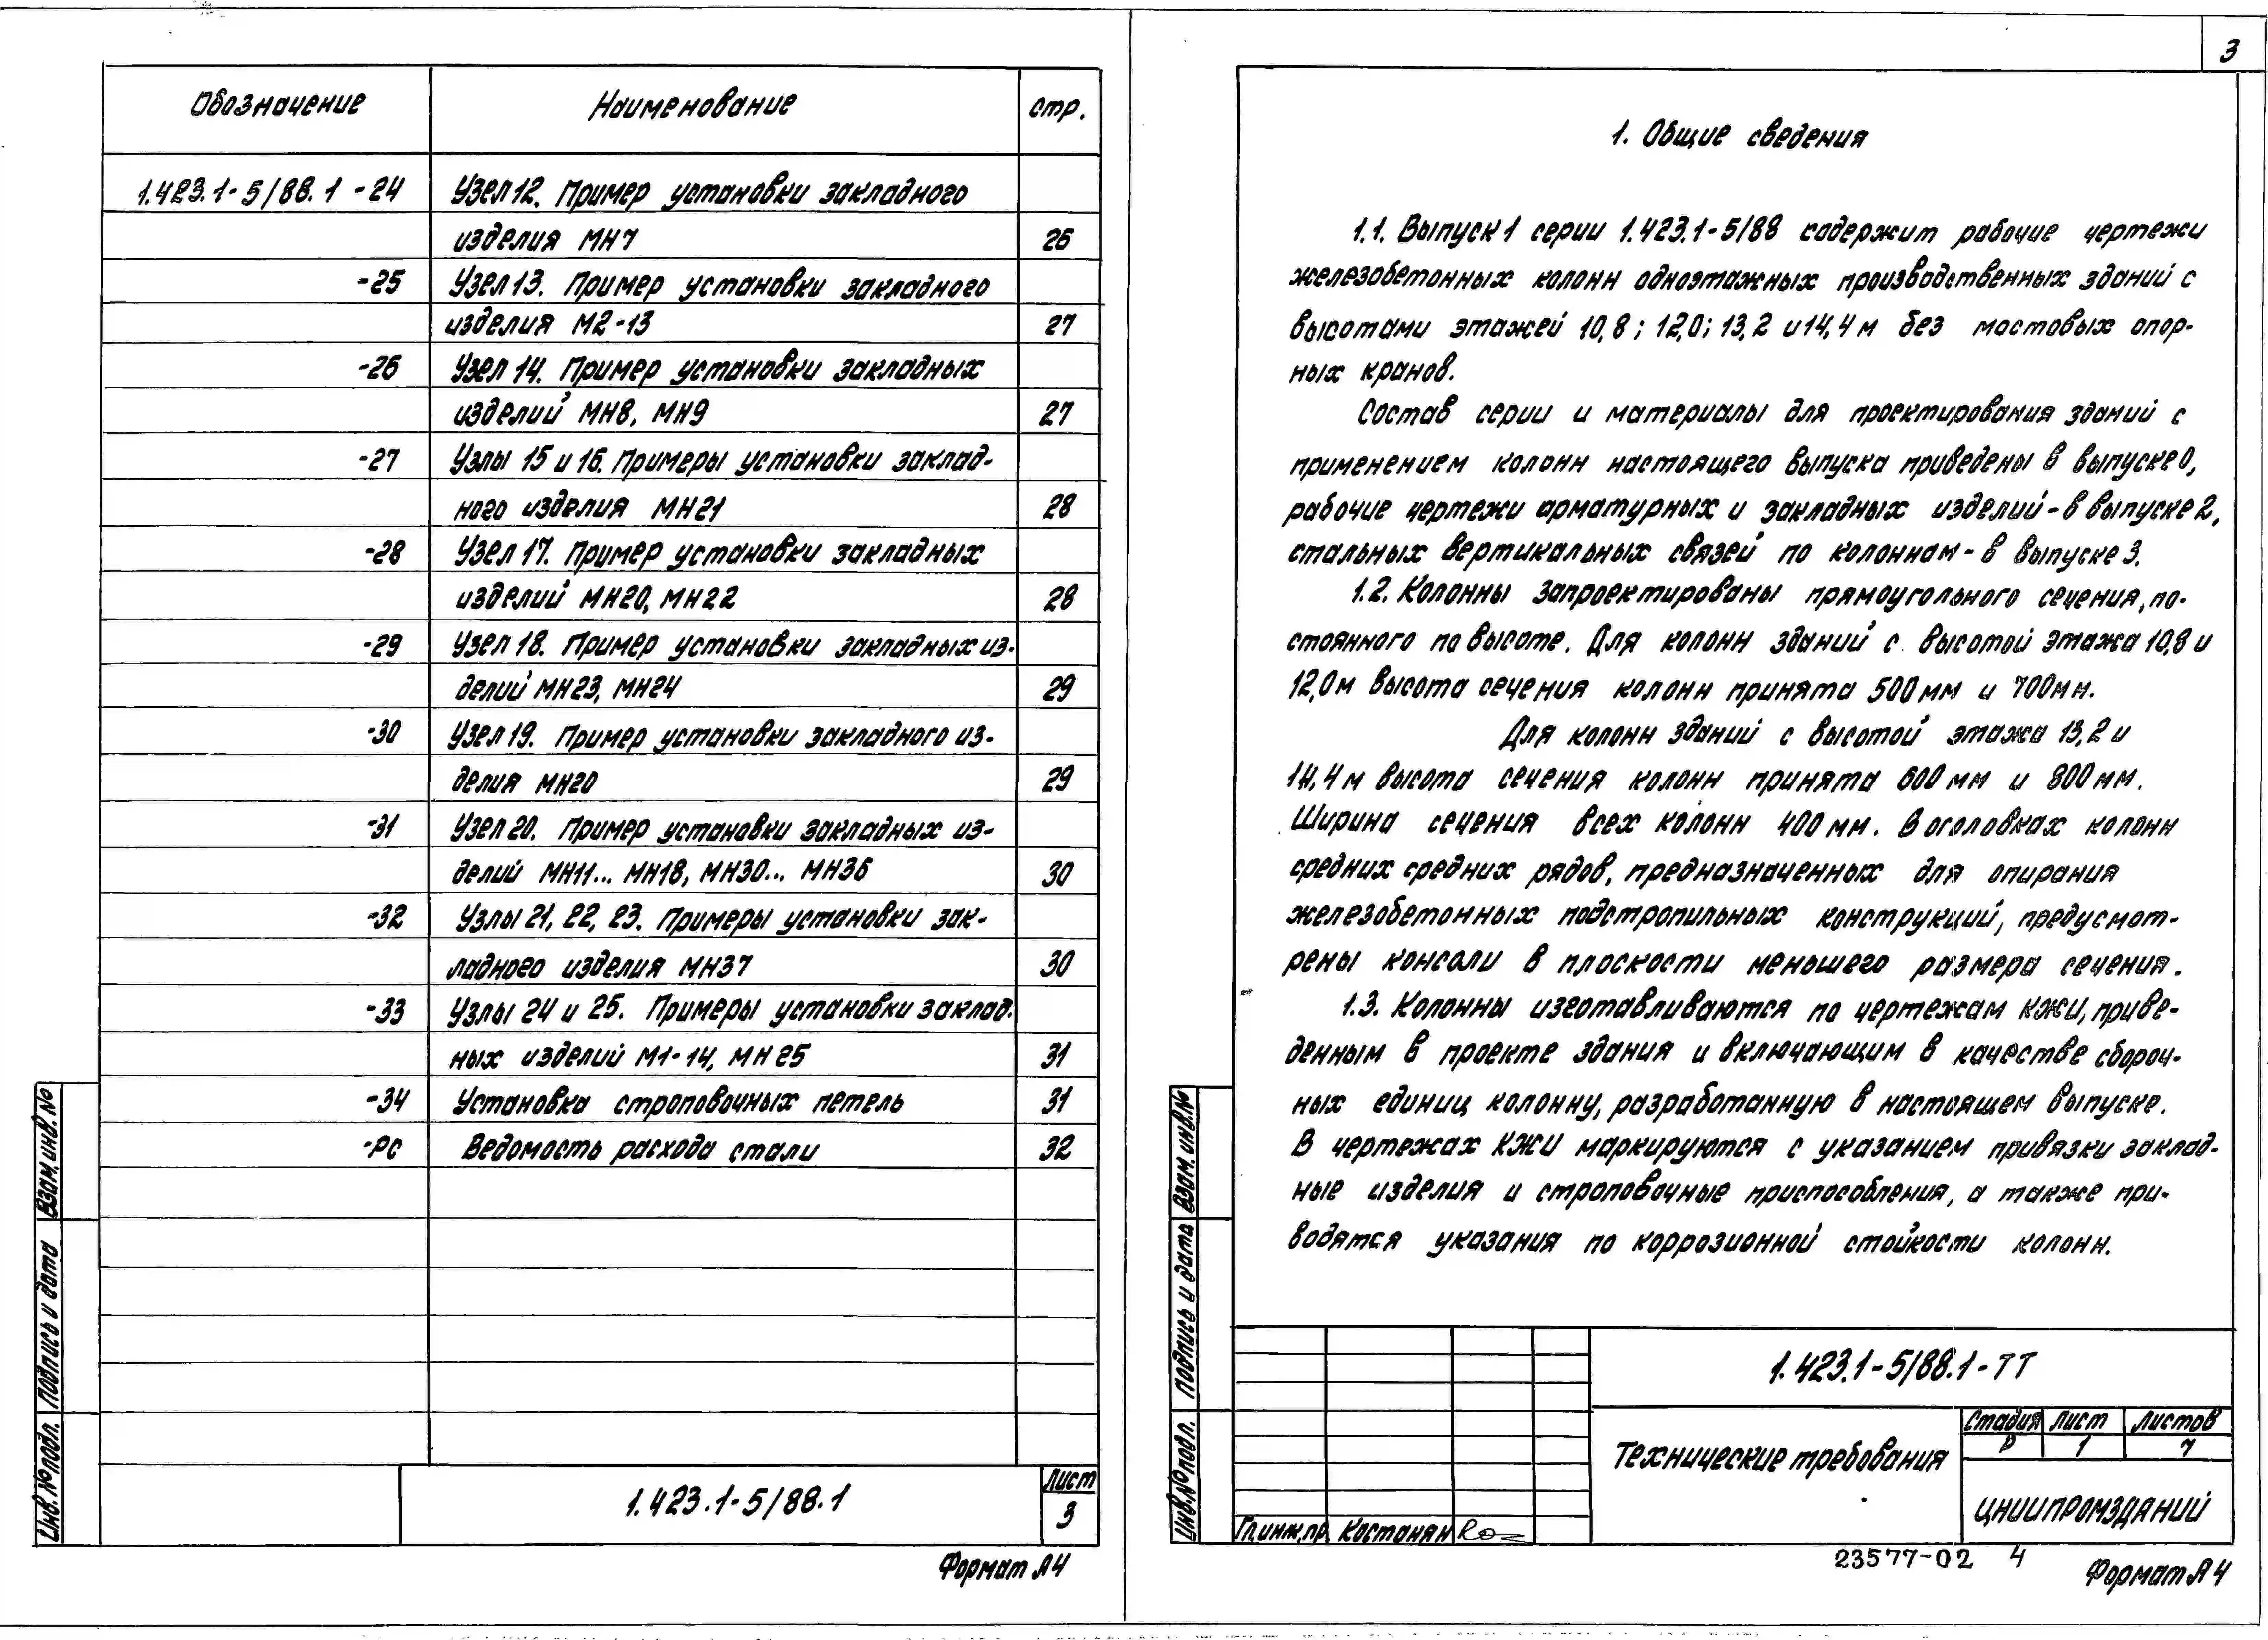 Обозначение Наименование стр.
1.423.1-5/88.1 -24 Узел 12. Пример установки закладного
изделия МН7 26
-25 Узел 13. Пример установки закладного
изделия М2-13 27
-26 Узел 14. Пример установки закладных
изделий МН8, МН9 27
-27 Узлы 15 и 16. Примеры установки заклад-
ного изделия МН21 28
-28 Узел 17. Пример установки закладных
изделий МН20, МН22 28
-29 Узел 18. Пример установки закладных из-
делий МН23, МН24 29
-30 Узел 19. Пример установки закладного из-
делия МН20 29
-31 Узел 20. Пример установки закладных из-
делий МН11... МН18, МН30... МН36 30
-32 Узлы 21, 22, 23. Примеры установки зак-
ладного изделия МН37 30
-33 Узлы 24 и 25. Примеры установки заклад-
ных изделий М1-14, МН25 31
-34 Установка строповочных петель 31
-РС Ведомость расхода стали 32
Взам. инв. №
Подпись и дата
Инв. № подл.
1.423.1-5/88.1
Лист
3
Формат А4
3
1. Общие сведения
1.1. Выпуск 1 серии 1.423.1-5/88 содержит рабочие чертежи
железобетонных колонн одноэтажных производственных зданий с
высотами этажей 10,8; 12,0; 13,2 и 14,4 м без мостовых опор-
ных кранов.
Состав серии и материалы для проектирования зданий с
применением колонн настоящего выпуска приведены в выпуске 0,
рабочие чертежи арматурных и закладных изделий - в выпуске 2,
стальных вертикальных связей по колоннам - в выпуске 3.
1.2. Колонны запроектированы прямоугольного сечения, по-
стоянного по высоте. Для колонн зданий с высотой этажа 10,8 и
12,0 м высота сечения колонн принята 500 мм и 700 мм.
Для колонн зданий с высотой этажа 13,2 и
14,4 м высота сечения колонн принята 600 мм и 800 мм.
Ширина сечения всех колонн 400 мм. В оголовках колонн
средних средних рядов, предназначенных для опирания
железобетонных подстропильных конструкций, предусмот-
рены консоли в плоскости меньшего размера сечения.
1.3. Колонны изготавливаются по чертежам КЖИ, приве-
денным в проекте здания и включающим в качестве сбороч-
ных единиц колонну, разработанную в настоящем выпуске.
В чертежах КЖИ маркируются с указанием привязки заклад-
ные изделия и строповочные приспособления, а также при-
водятся указания по коррозионной стойкости колонн.
Взам. инв. №
Подпись и дата
Инв. № подл.
1.423.1-5/88.1-ТТ
Технические требования
Стадия Лист Листов
Р 1 7
ЦНИИПРОМЗДАНИЙ
Гл.инж.пр. Костанян
23577-02 4
Формат А4